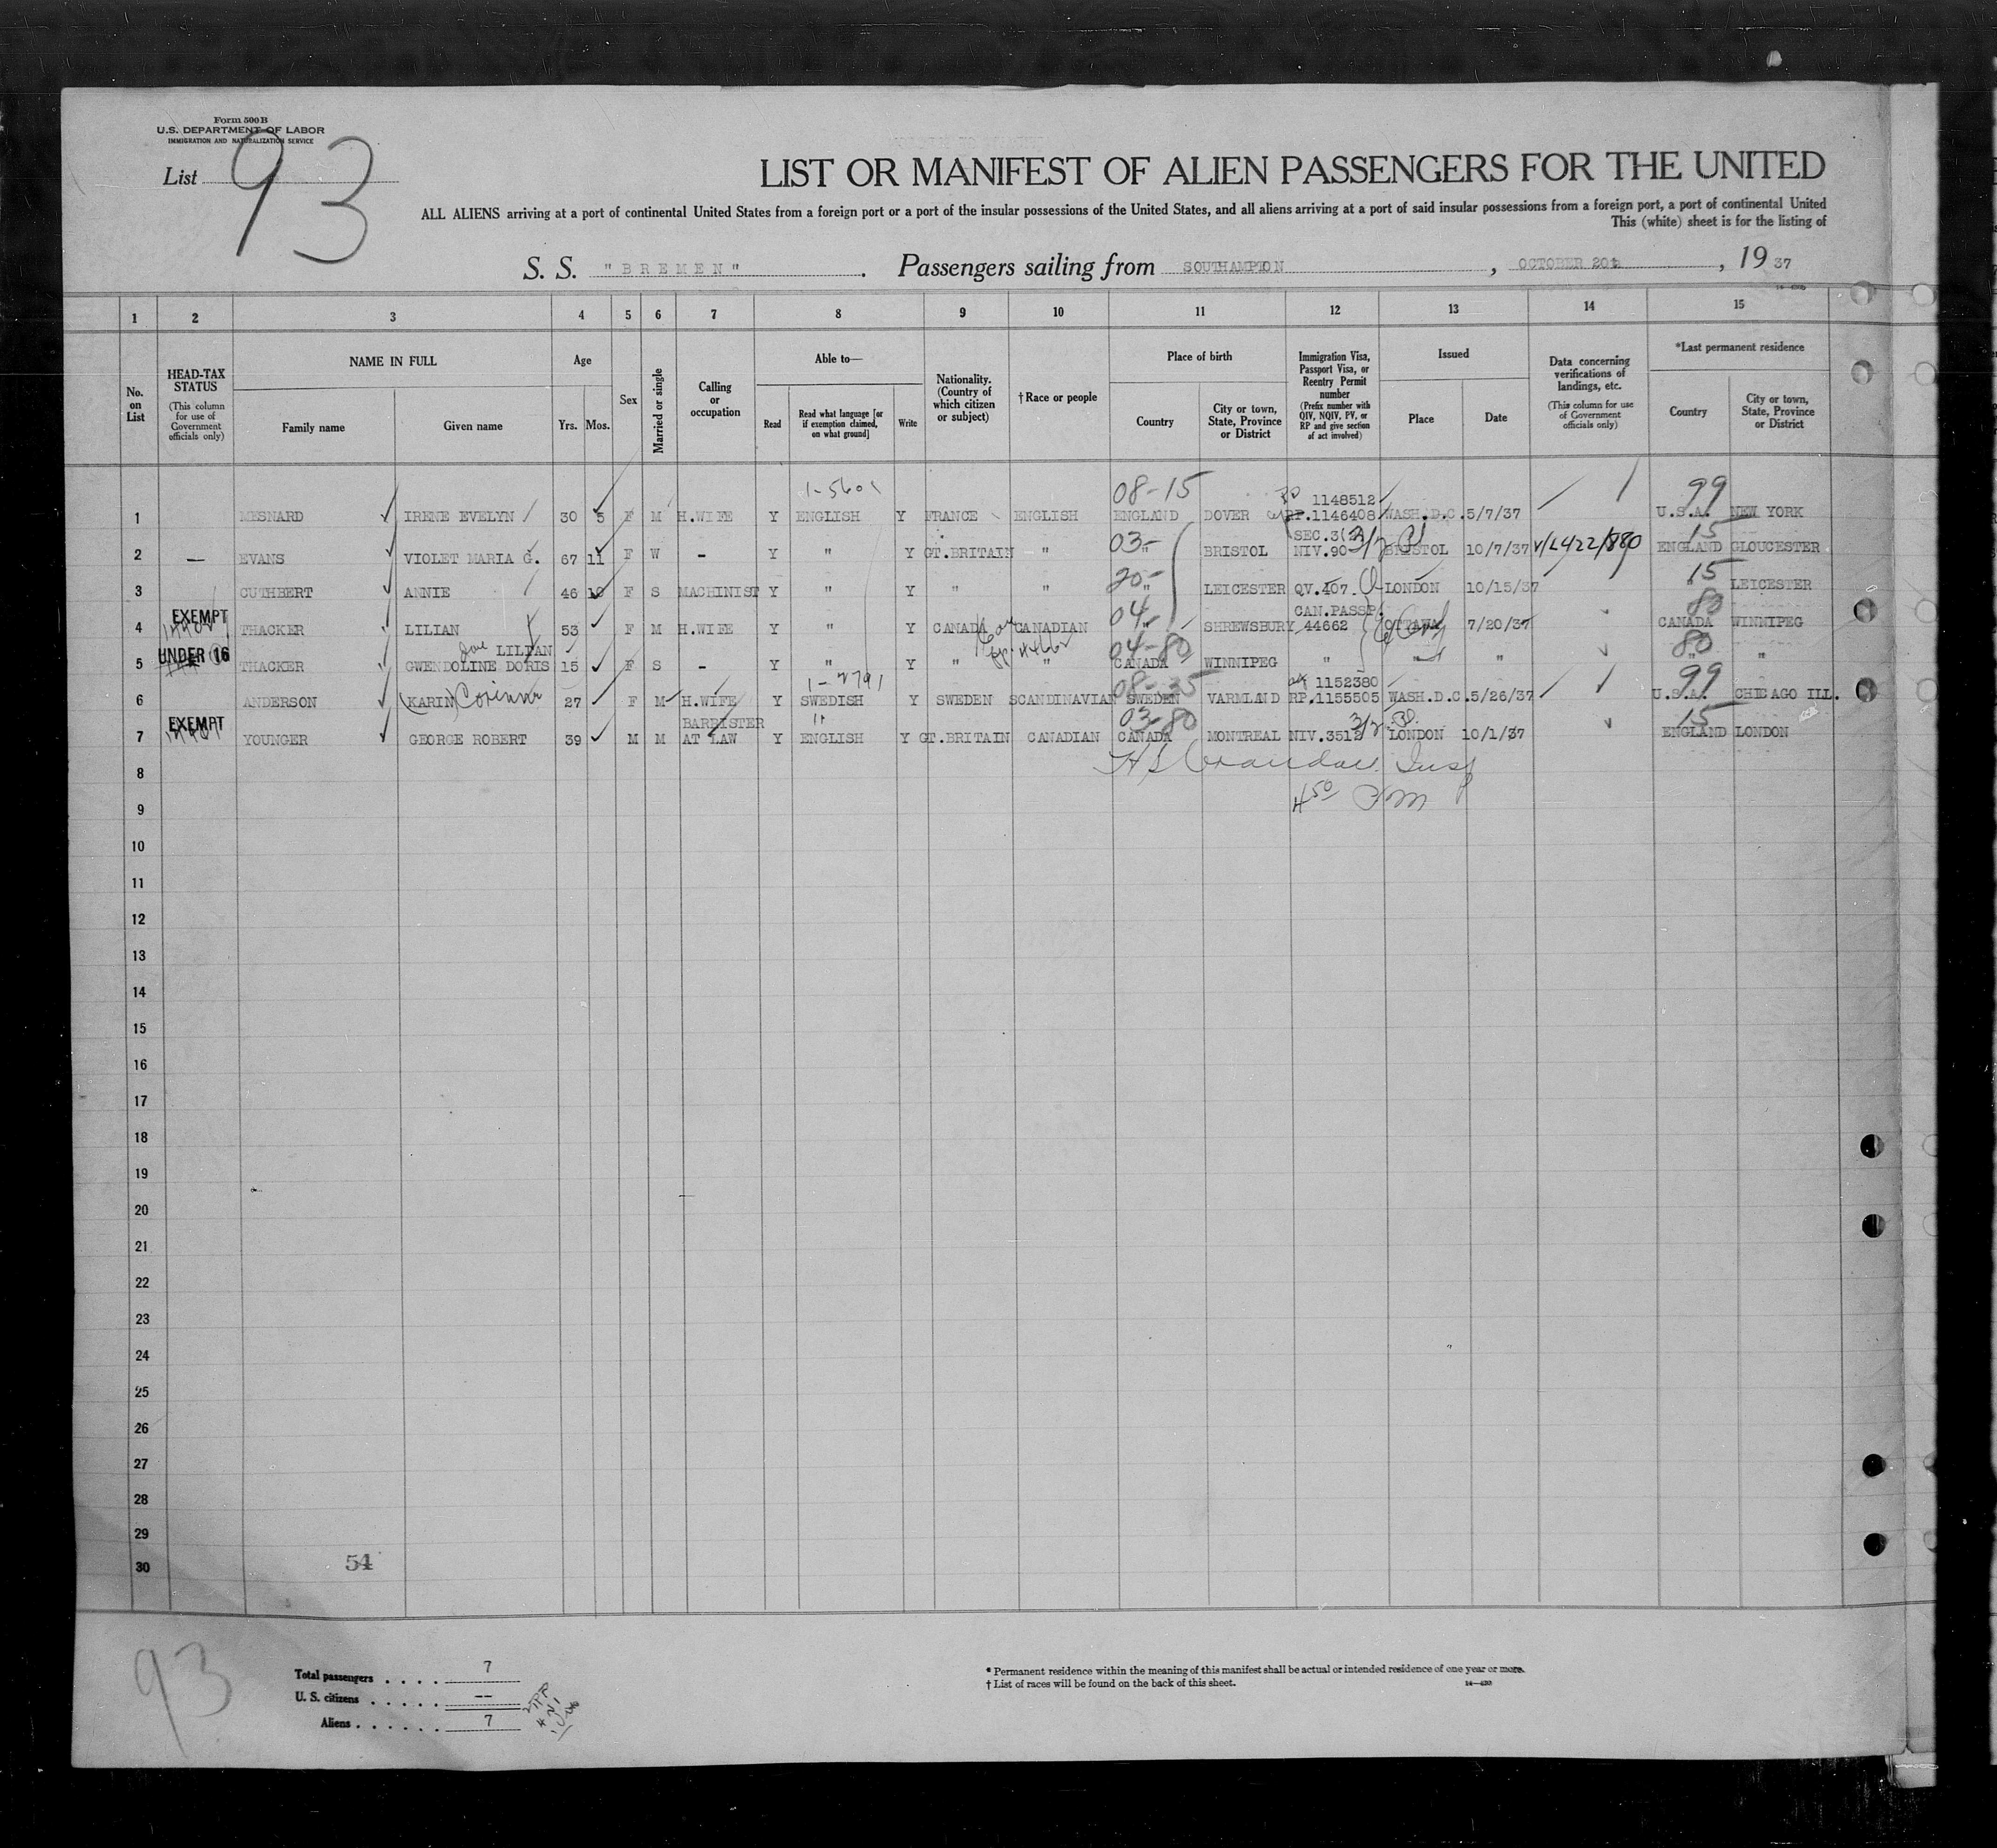 Form 500B
U.S. DEPARTMENT OF LABOR
IMMIGRATION AND NATURALIZATION SERVICE
List 93
LIST OR MANIFEST OF ALIEN PASSENGERS FOR THE UNITED
ALL ALIENS arriving at a port of continental United States from a foreign port or a port of the insular possessions of the United States, and all aliens arriving at a port of said insular possessions from a foreign port, a port of continental United
This (white) sheet is for the listing of
S. S. "BREMEN". Passengers sailing from SOUTHAMPTON, OCTOBER 20th, 1937
1 2 3 4 5 6 7 8 9 10 11 12 13 14 15
No. on List
HEAD-TAX STATUS (This column for use of Government officials only)
NAME IN FULL
Family name Given name
Age
Yrs. Mos.
Sex
Married or single
Calling or occupation
Able to—
Read Read what language [or if exemption claimed, on what ground] Write
Nationality. (Country of which citizen or subject)
†Race or people
Place of birth
Country City or town, State, Province or District
Immigration Visa, Passport Visa, or Reentry Permit number (Prefix number with QIV, NQIV, PV, or RP and give section of act involved)
Issued
Place Date
Data concerning verifications of landings, etc. (This column for use of Government officials only)
*Last permanent residence
Country City or town, State, Province or District
1-5601 08-15 1148512 99
1 MESNARD IRENE EVELYN 30 5 F M H.WIFE Y ENGLISH Y FRANCE ENGLISH ENGLAND DOVER RP.1146408 WASH.D.C. 5/7/37 U.S.A. NEW YORK
03- SEC.3(2) 3/2 15
2 — EVANS VIOLET MARIA G. 67 11 F W - Y " Y GT.BRITAIN " " BRISTOL NIV.90 BRISTOL 10/7/37 ENGLAND GLOUCESTER
20- 15
3 CUTHBERT ANNIE 46 10 F S MACHINIST Y " Y " " " LEICESTER QV.407 LONDON 10/15/37 " LEICESTER
EXEMPT 04- CAN.PASSP. 80
4 THACKER LILIAN 53 F M H.WIFE Y " Y CANADA CANADIAN " SHREWSBURY 44662 OTTAWA 7/20/37 CANADA WINNIPEG
UNDER 16 LILIAN 04-80 80
5 THACKER GWENDOLINE DORIS 15 F S - Y " Y " " CANADA WINNIPEG " " " " "
1-2791 08-35 1152380 99
6 ANDERSON (KARIN) Corinna 27 F M H.WIFE Y SWEDISH Y SWEDEN SCANDINAVIAN SWEDEN VARMLAND RP.1155505 WASH.D.C. 5/26/37 U.S.A. CHICAGO ILL.
EXEMPT BARRISTER 03-80 3/2 15
7 YOUNGER GEORGE ROBERT 39 M M AT LAW Y ENGLISH Y GT.BRITAIN CANADIAN CANADA MONTREAL NIV.3512 LONDON 10/1/37 ENGLAND LONDON
8
9 4 50 PM
10
11
12
13
14
15
16
17
18
19
20
21
22
23
24
25
26
27
28
29
30 54
93
Total passengers . . . . 7
U. S. citizens . . . . . --
Aliens . . . . . . 7
* Permanent residence within the meaning of this manifest shall be actual or intended residence of one year or more.
† List of races will be found on the back of this sheet.